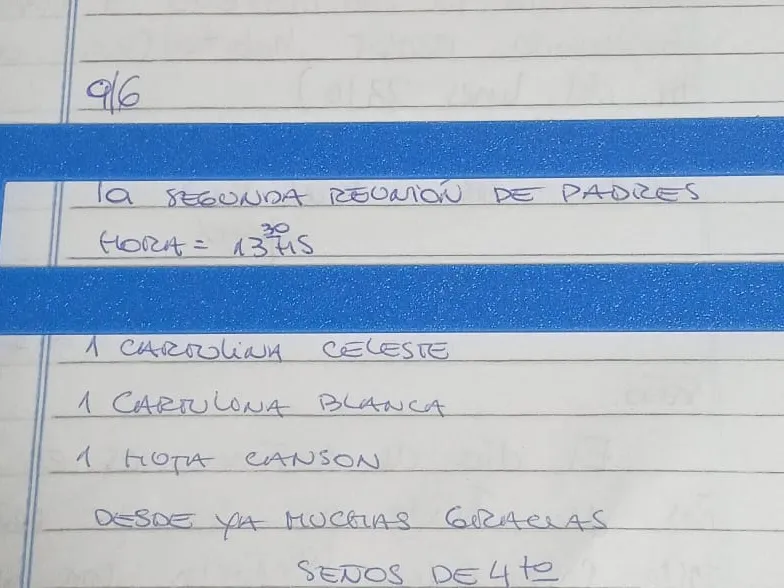 9/6
la SEGUNDA REUNIÓN DE PADRES
HORA = 13 30 HS
1 CARTULINA CELESTE
1 CARTULINA BLANCA
1 HOJA CANSON
DESDE YA MUCHAS GRACIAS
SEÑOS DE 4to